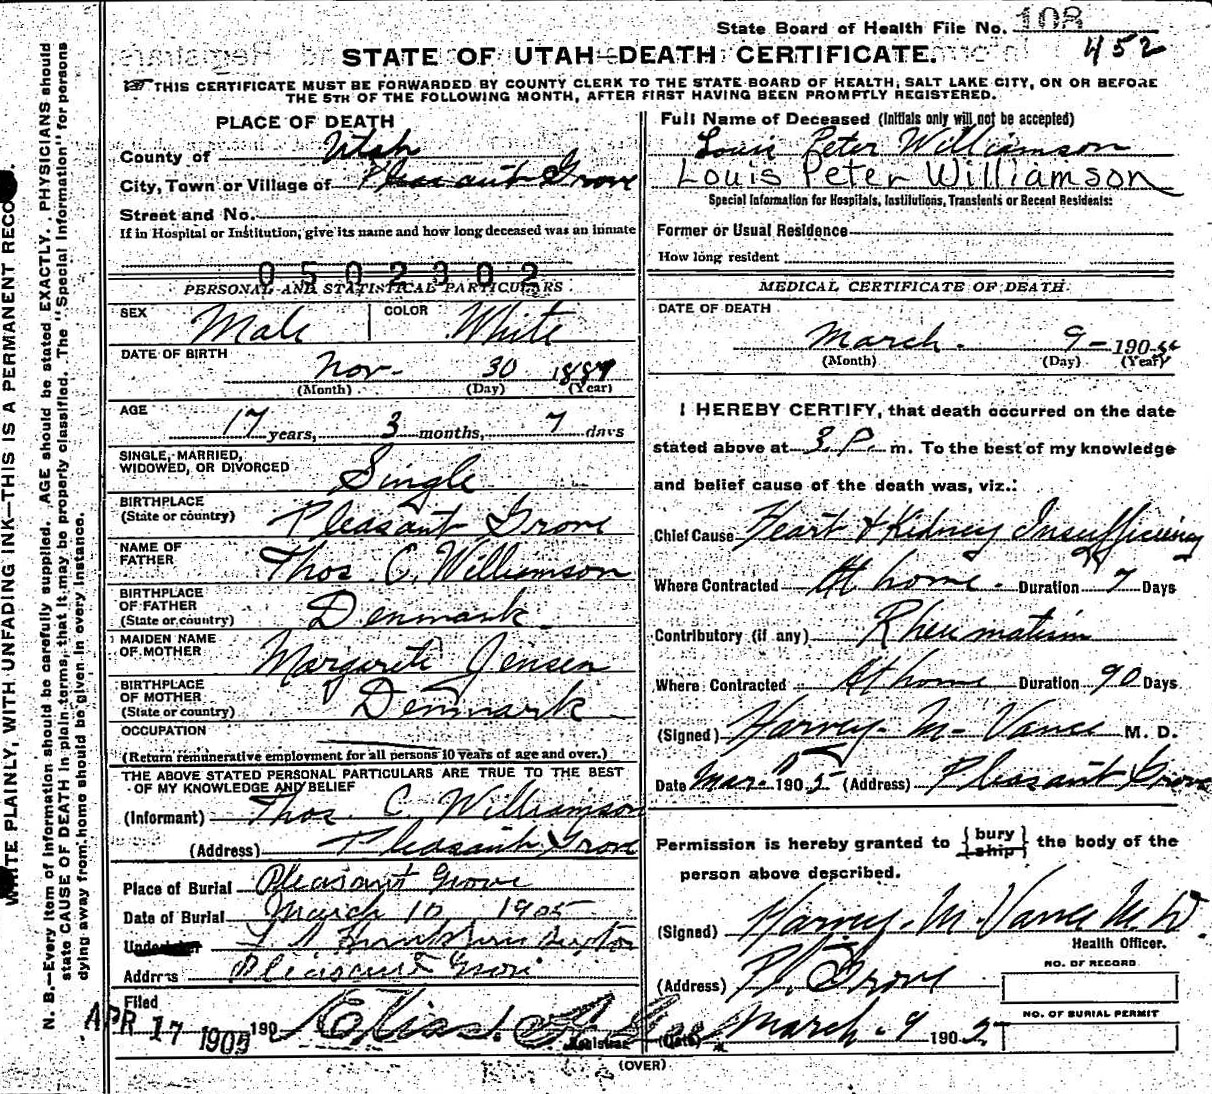 State Board of Health File No. 108
452
STATE OF UTAH—DEATH CERTIFICATE.
THIS CERTIFICATE MUST BE FORWARDED BY COUNTY CLERK TO THE STATE BOARD OF HEALTH, SALT LAKE CITY, ON OR BEFORE
THE 5TH OF THE FOLLOWING MONTH, AFTER FIRST HAVING BEEN PROMPTLY REGISTERED.
PLACE OF DEATH
County of Utah
City, Town or Village of Pleasant Grove
Street and No.
If in Hospital or Institution, give its name and how long deceased was an inmate
0502302
PERSONAL AND STATISTICAL PARTICULARS
SEX Male COLOR White
DATE OF BIRTH
Nov. 30 1887
(Month) (Day) (Year)
AGE
17 years, 3 months, 7 days
SINGLE, MARRIED,
WIDOWED, OR DIVORCED Single
BIRTHPLACE
(State or country) Pleasant Grove
NAME OF
FATHER Thos. C. Williamson
BIRTHPLACE
OF FATHER
(State or country) Denmark
MAIDEN NAME
OF MOTHER Margarete Jensen
BIRTHPLACE
OF MOTHER
(State or country) Denmark
OCCUPATION
(Return remunerative employment for all persons 10 years of age and over.)
THE ABOVE STATED PERSONAL PARTICULARS ARE TRUE TO THE BEST
OF MY KNOWLEDGE AND BELIEF
(Informant) Thos. C. Williamson
(Address) Pleasant Grove
Place of Burial Pleasant Grove
Date of Burial March 10 1905
Undertaker
Address Pleasant Grove
Filed
APR 17 1905 190 Elias
Registrar
Full Name of Deceased (Initials only will not be accepted)
Louis Peter Williamson
Louis Peter Williamson
Special Information for Hospitals, Institutions, Transients or Recent Residents:
Former or Usual Residence
How long resident
MEDICAL CERTIFICATE OF DEATH.
DATE OF DEATH
March 9 190
(Month) (Day) (Year)
I HEREBY CERTIFY, that death occurred on the date
stated above at 3 P. m. To the best of my knowledge
and belief cause of the death was, viz.:
Chief Cause Heart & Kidney Insufficiency
Where Contracted At home Duration 7 Days
Contributory (if any) Rheumatism
Where Contracted At home Duration 90 Days
(Signed) Harvey M. Vance M. D.
Date Mar. 1905 (Address) Pleasant Grove
Permission is hereby granted to {bury / ship} the body of the
person above described.
(Signed) Harvey M. Vance M.D.
Health Officer.
(Address) Pl. Grove
NO. OF RECORD
NO. OF BURIAL PERMIT
(Date) March 9 1905
(OVER)
WRITE PLAINLY, WITH UNFADING INK—THIS IS A PERMANENT RECO
N. B.—Every item of information should be carefully supplied. AGE should be stated EXACTLY. PHYSICIANS should
state CAUSE OF DEATH in plain terms, that it may be properly classified. The "Special Information" for persons
dying away from home should be given in every instance.